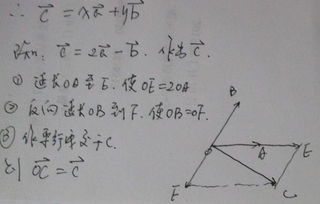 ∴ c⃗ = xa⃗ + yb⃗
例: c⃗ = 2a⃗ - b⃗. 作出 c⃗.
① 延长OA至E. 使OE=2OA
② 反向延长OB到F. 使OB=OF.
③ 作平行四边形交于C.
则 OC⃗ = c⃗
B
O
A
E
F
C